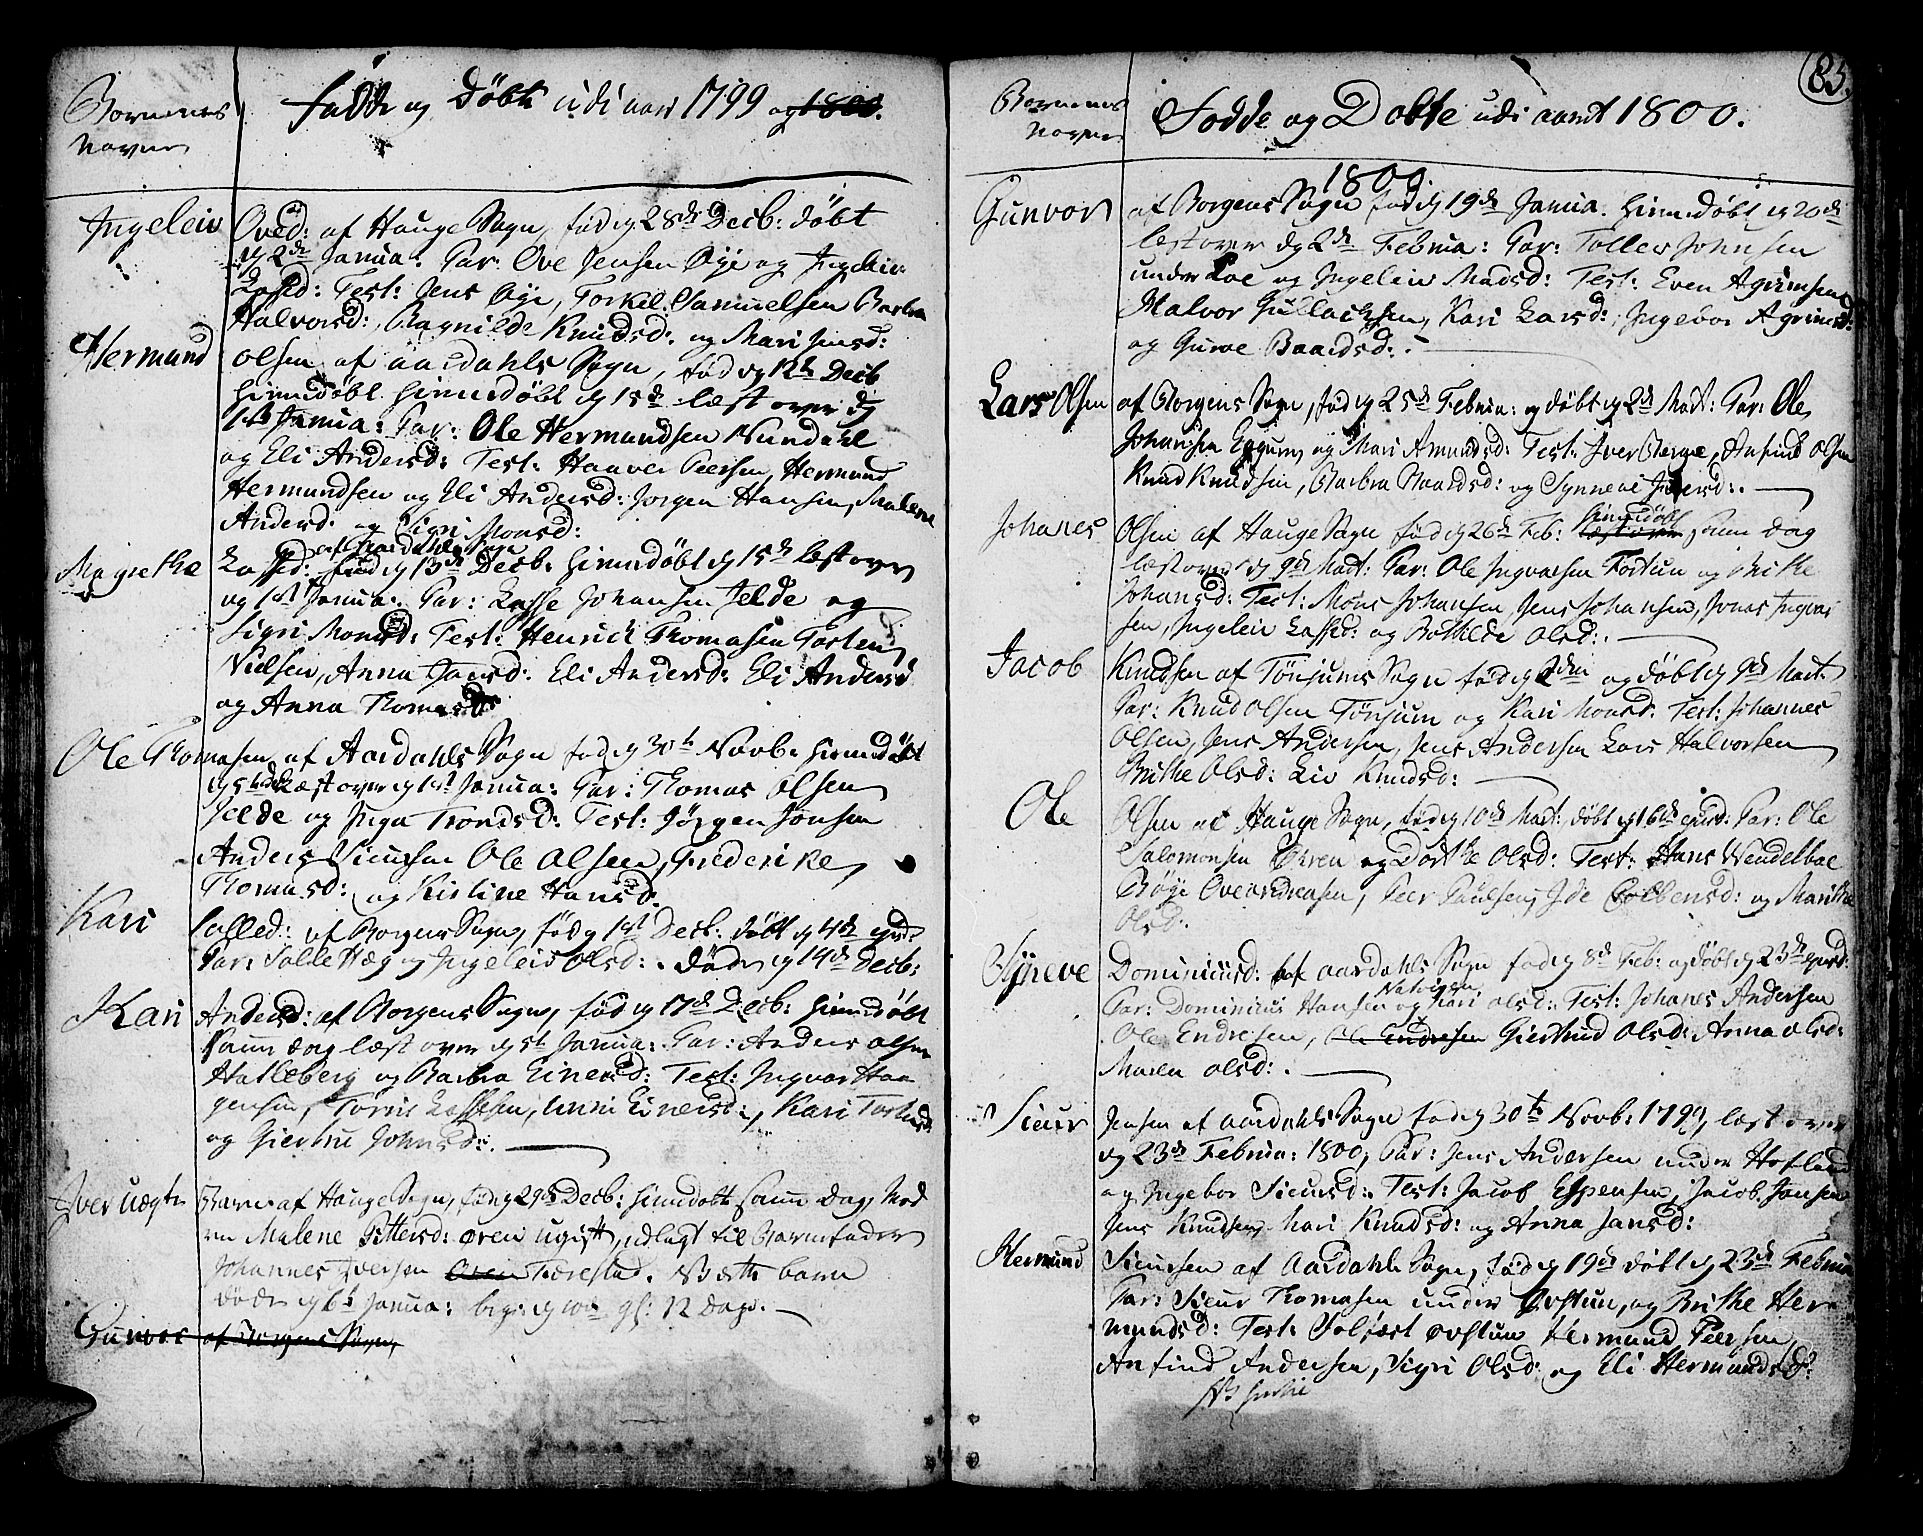 Børnenes
Navne
Fødde og Døbte udi aaret 1799 og 1800.
Ingeleiv Oved: af Hauge Sogn, fød og 28de Decb: døbt
og 2de Janua: Par: Ove Jensen Øye og Ingeleiv
Lassed: Test: Jens Øye, Torkel Samuelsen Barbra
Halvorsd:, Ragnilde Knudsd: og Mari Jensd:
Hermund Olsen af Aardahls Sogn, fød og 12te Decb
hiemdøbt hiemdøbt og 15de læst over og
1ste Janua: Par: Ole Hermundsen Nundahl
og Eli Andersd: Test: Haaver Peersen, Hermund
Hermundsen og Eli Andersd: Jørgen Hansen, Malene
Andersd. og Sigri Monsd:
af Aardahls Sogn
Magrethe Lassed: fød og 13de Decb: hiemdøbt og 15de læst over
og 1st Janua: Par: Lasse Johansen Jelde og
Sigri Monsd: Test: Henrich Thomasen Torsten
Nielsen, Anna Jansd: Eli Andersd: Eli Andersd
og Anna Thomasd
Ole Thomasen af Aardahls Sogn fød og 30te Novb: hiemdøbt
og 5te Læst over og 1st Janua: Par: Thomas Olsen
Jelde og Inga Trondsd: Test: Jørgen Jonsen
Anders Siursen Ole Olsen, Frederike
Thomasd: og Kirstine Hansd.
Kari Salled: af Borgens Sogn, fød og 1st Decb: døbt og 4de ejusd:
Par: Salle Hæg og Ingeleiv Olsd: Døde og 14de Decb:
Kari Andersd: af Borgens Sogn, fød og 17de Decb: hiemdøbt
samme dag læst over og 5te Janua: Par: Anders Olsen
Hatleberg og Barbra Einersd: Test: Ingvar Haa
gensen, Tørris Lassesen, Unni Einersd:, Kari Torkelsd:
og Giertrue Johnsd:
Iver uægte Barn af Hauge Sogn, fød og 29de Decb: hiemdøbt samme Dag, Mod
ren Malene Pittersd: Øren ugift, udlagt til Barnefader
Johannes Iversen Øren Færestad. NB: Dette barn
døde og 6te Janua: begr: og 10de gl: 12 Dage.
Gunvor af Borgens Sogn,
85.
Børnenes
Navne
Fødde og Døbte udi aaret 1800.
1800.
Gunvor af Borgens Sogn fød og 19de Janua. hiemdøbt og 20de
læst over og 2de Februa: Par: Tollev Johnsen
under Loe og Ingeleiv Madsd: Test: Even Agrimsen
Halvor Gullachsen, Kari Larsd:, Ingebor Agrimsd:
og Gurve Baardsd:
Lars Olsen af Borgens Sogn, fød og 25de Februa: og døbt og 2de Mart: Par: Ole
Johansen Eggum, og Mari Amundsd: Test: Iver Berge, Anfind Olsen
Knud Knudsen, Barbra Baardsd: og Synneve Iversd:
hiemdøbt
Johanes Olsen af Hauge Sogn fød og 26de Feb: læst over samme dag
læst over og 9de Mart: Par: Ole Ingvarsen Fortun og Brithe
Johansd: Test: Mons Johansen, Jens Johansen, Jonas Ingvar
sen, Ingeleiv Lassed: og Bothilde Olsd:
Jacob Knudsen af Tønjums Sogn fød og 2den og døbt og 9de Mart:
Par: Knud Olsen Tønjum og Kari Monsd: Test: Johannes
Olsen, Jens Andersen, Jens Andersen Lars Halvorsen
Brithe Olsd: Liv Knudsd:
Ole Olsen af Hauge Sogn, fød og 10de Mart:, døbt og 16de ejusd: Par: Ole
Salomonsen Øren og Dorthe Olsd: Test: Hans Wendelboe
Bøye Ove Andreasen, Peer Paulsen, Ide Colbensd: og Marithe
Olsd.
Syneve Dominicusd: af Aardahls Sogn fød og 8de Feb: og døbt og 23de ejusd:
Natvigen
Par: Dominicus Hansen og Kari Olsd: Test: Johanes Andersen
Ole Endresen, Ole Endresen Giertrud Olsd: Anna Olsd:
Maren Olsd:
Siur Jensen af Aardahls Sogn fød og 30te Novb: 1799, læst over
og 23de Februa: 1800, Par: Jens Andersen under Hofland
og Ingebor Siursd: Test: Jacob Espensen, Jacob Jansen
Jens Knudsen, Mari Knudsd: og Anna Jansd:
Hermund Siursen af Aardahls Sogn, fød og 19de døbt og 23de Februa
Par: Siur Thomasen under Øvstun, og Brithe Her
mundsd: Test: Solfæst Øvstun Hermund Peersen
Anfind Andersen, Sigri Olsd: og Eli Hermundsd: